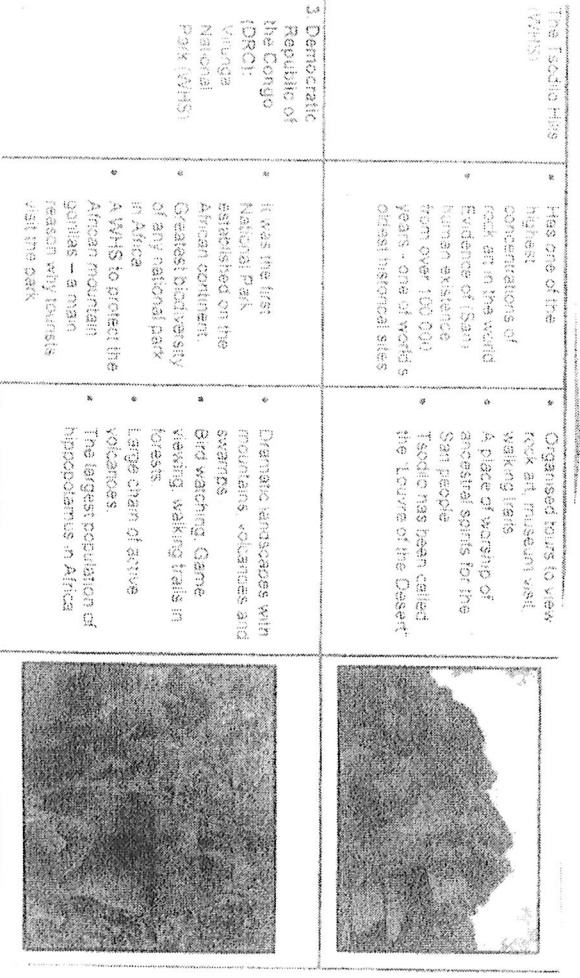 The Tsodilo Hills
(WHS)
Has one of the
highest
concentrations of
rock art in the world
Evidence of San
human existence
from over 100 000
years - one of world's
oldest historical sites
Organised tours to view
rock art, museum visit,
walking trails
A place of worship of
ancestral spirits for the
San people
Tsodilo has been called
the "Louvre of the Desert"
3. Democratic
Republic of
the Congo
(DRC):
Virunga
National
Park (WHS)
It was the first
National Park
established on the
African continent.
Greatest biodiversity
of any national park
in Africa
A WHS to protect the
African mountain
gorillas – a main
reason why tourists
visit the park
Dramatic landscapes with
mountains, volcanoes and
swamps
Bird watching, Game
viewing, walking trails in
forests
Large chain of active
volcanoes
The largest population of
hippopotamus in Africa